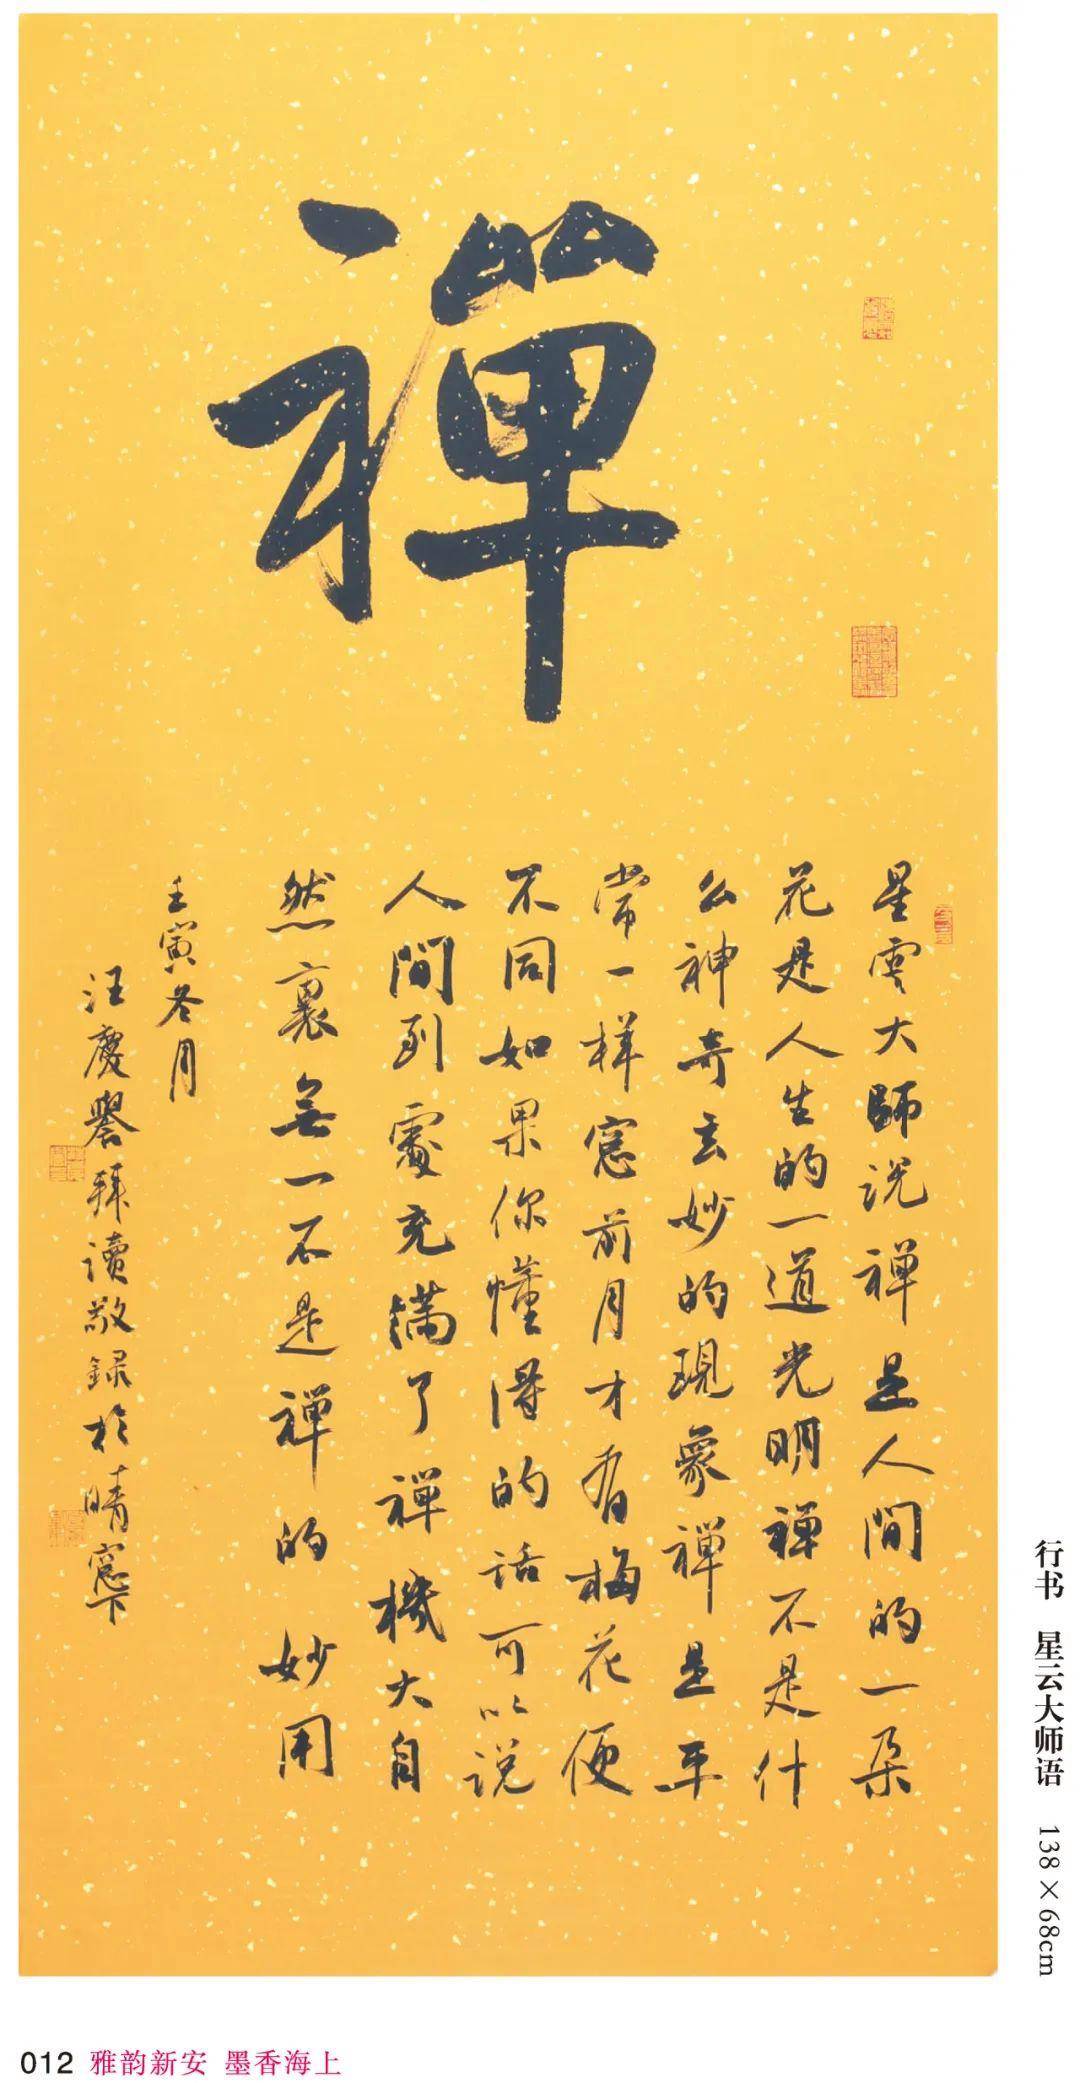 禪
星雲大師説禪是人間的一朵
花是人生的一道光明禪不是什
么神奇玄妙的現象禪是平
常一樣窓前月才有梅花便
不同如果你懂得的话可以説
人間到處充滿了禪機大自
然裏無一不是禪的妙用
壬寅冬月
汪慶譽拜讀敬録於晴窓下
行书 星云大师语 138×68cm
012 雅韵新安 墨香海上